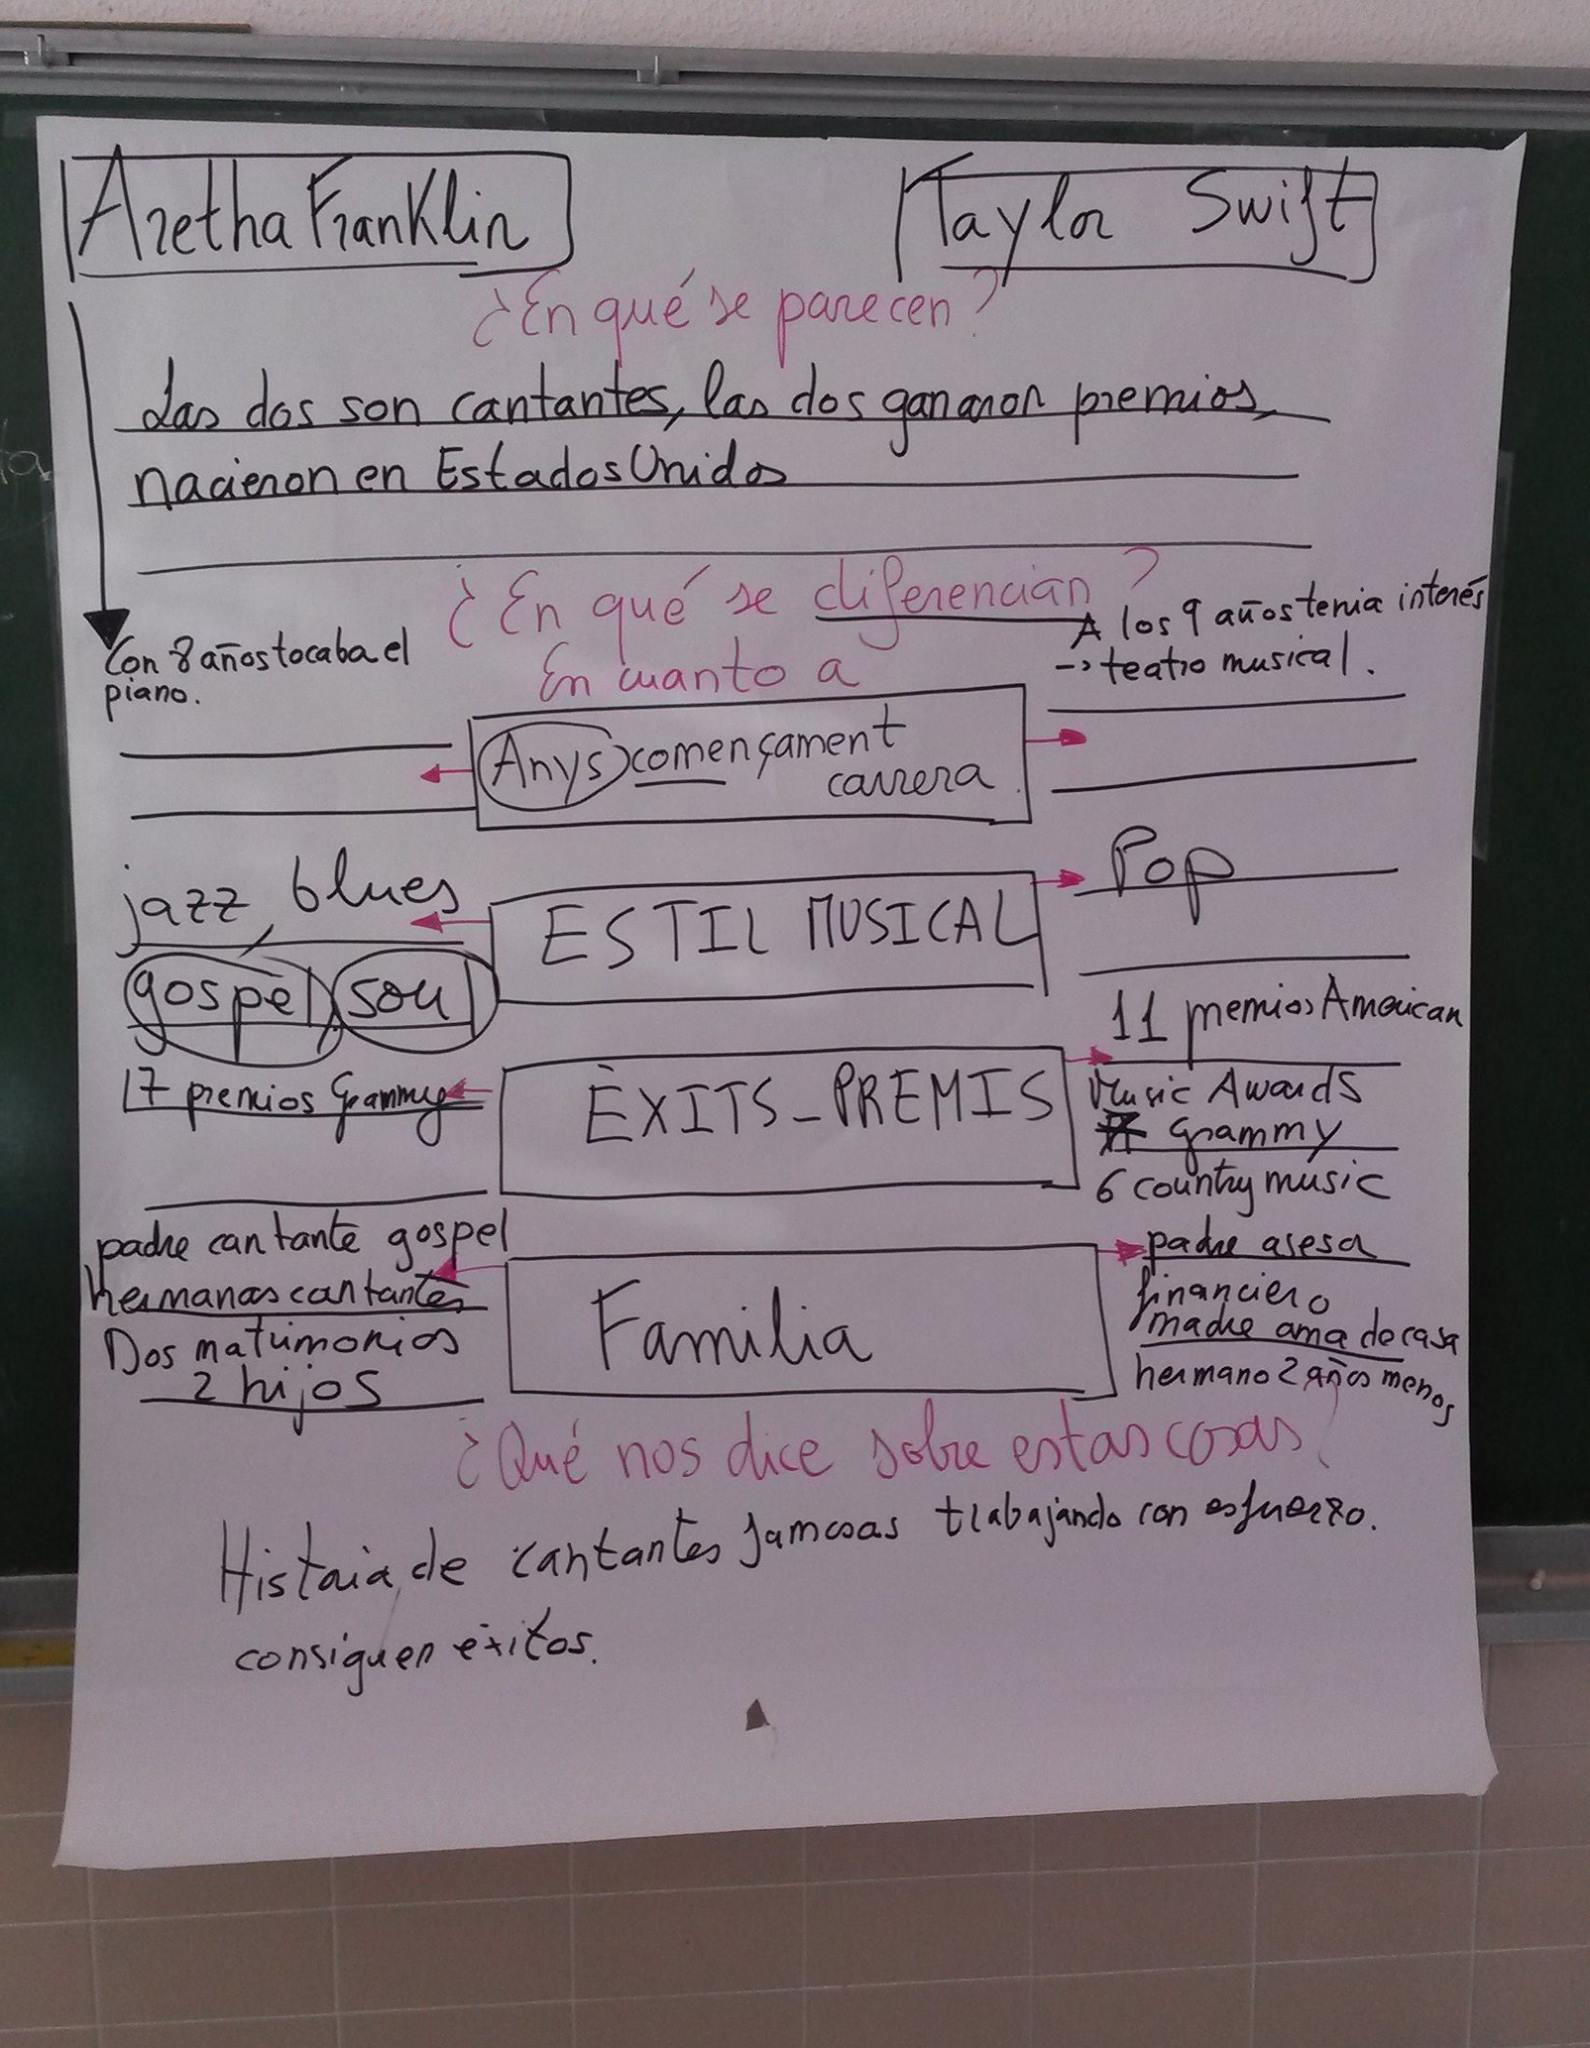 Aretha Franklin
Taylor Swift
¿En qué se parecen?
Las dos son cantantes, las dos ganaron premios,
nacieron en Estados Unidos
¿En qué se diferencian?
En cuanto a
Con 8 años tocaba el
piano.
A los 9 años tenia interés
-> teatro musical.
Anys començament
carrera
jazz, blues
gospel, soul
ESTIL MUSICAL
Pop
17 premios Grammy
ÈXITS_PREMIS
11 premios American
Music Awards
Grammy
6 country music
padre cantante gospel
hermanas cantantes
Dos matrimonios
2 hijos
Familia
padre asesor
financiero
madre ama de casa
hermano 2 años menos
¿Qué nos dice sobre estas cosas?
Historia de cantantes famosas trabajando con esfuerzo.
consiguen éxitos.